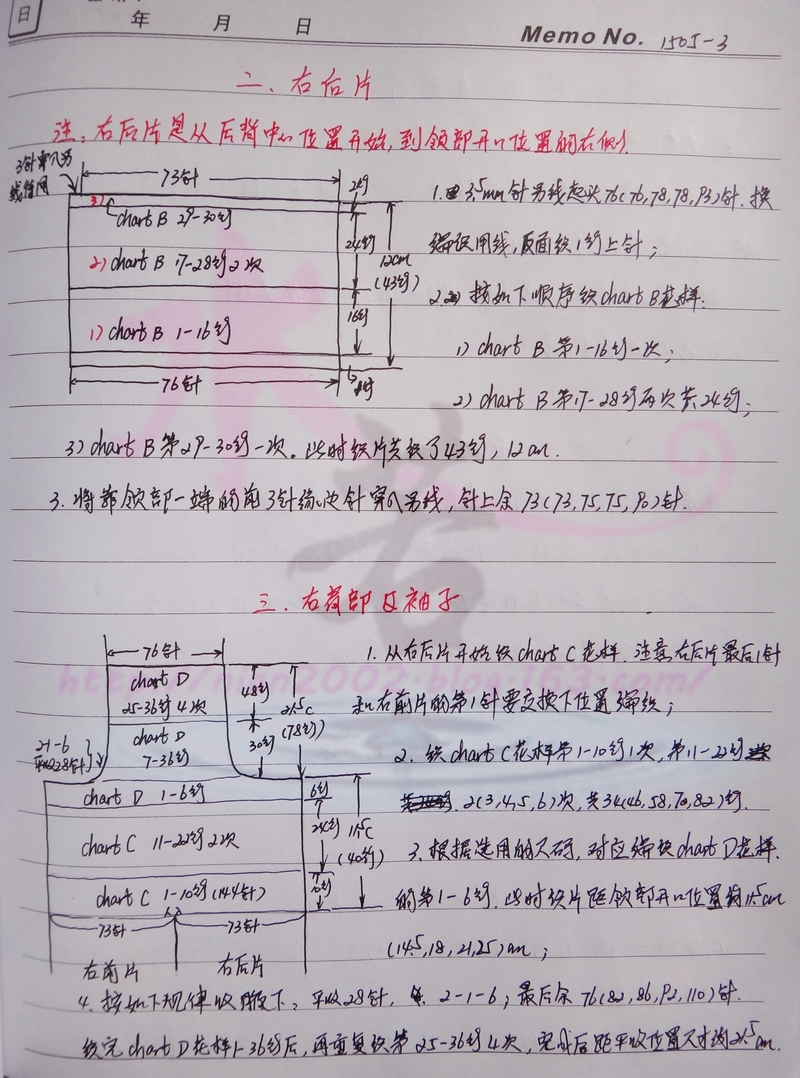 日
年 月 日
Memo No. 1505-3
二、右后片
注：右后片是从后背中心位置开始，到领部开口位置的右侧.
3针穿入另
线留网
73针
3)
chart B 29-30行
2) chart B 17-28行2次
1) chart B 1-16行
76针
2行
24行
16行
1行
12cm
(43行)
1. 用3.5mm针另线起头76(76,78,78,93)针. 换
编织用线，反面织1行上针；
2. 按如下顺序织chart B花样.
1) chart B 第1-16行一次；
2) chart B 第17-28行两次共24行；
3) chart B 第29-30行一次。此时织片共织了43行，12cm.
3. 将靠领部一端的前3针缘边针穿入另线，针上余73(73,75,75,90)针.
三、右肩部及袖子
76针
chart D
25-36行4次
chart D
7-36行
21-6
平收28针
chart D 1-6行
chart C 11-22行2次
chart C 1-10行(144针)
73针 73针
右前片 右后片
48行
30行
21.5C
(78行)
6行
24行
10行
11.5C
(40行)
1. 从右后片开始织chart C花样. 注意右后片最后1针
和右前片的第1针要交换下位置编织；
2. 织chart C花样第1-10行1次，第11-22行
2(3,4,5,6)次，共34(46,58,70,82)行.
3. 根据选用的尺码，对应编织chart D花样.
的第1-6行. 此时织片距领部开口位置约11.5cm
(14.5,18,21,25)cm；
4. 按如下规律收腋下：平收28针， 2-1-6；最后余76(82,86,92,110)针.
织完chart D花样1-36行后，再重复织第25-36行4次，完成后距平收位置尺寸约21.5cm.
http://nlm2002.blog.163.com/